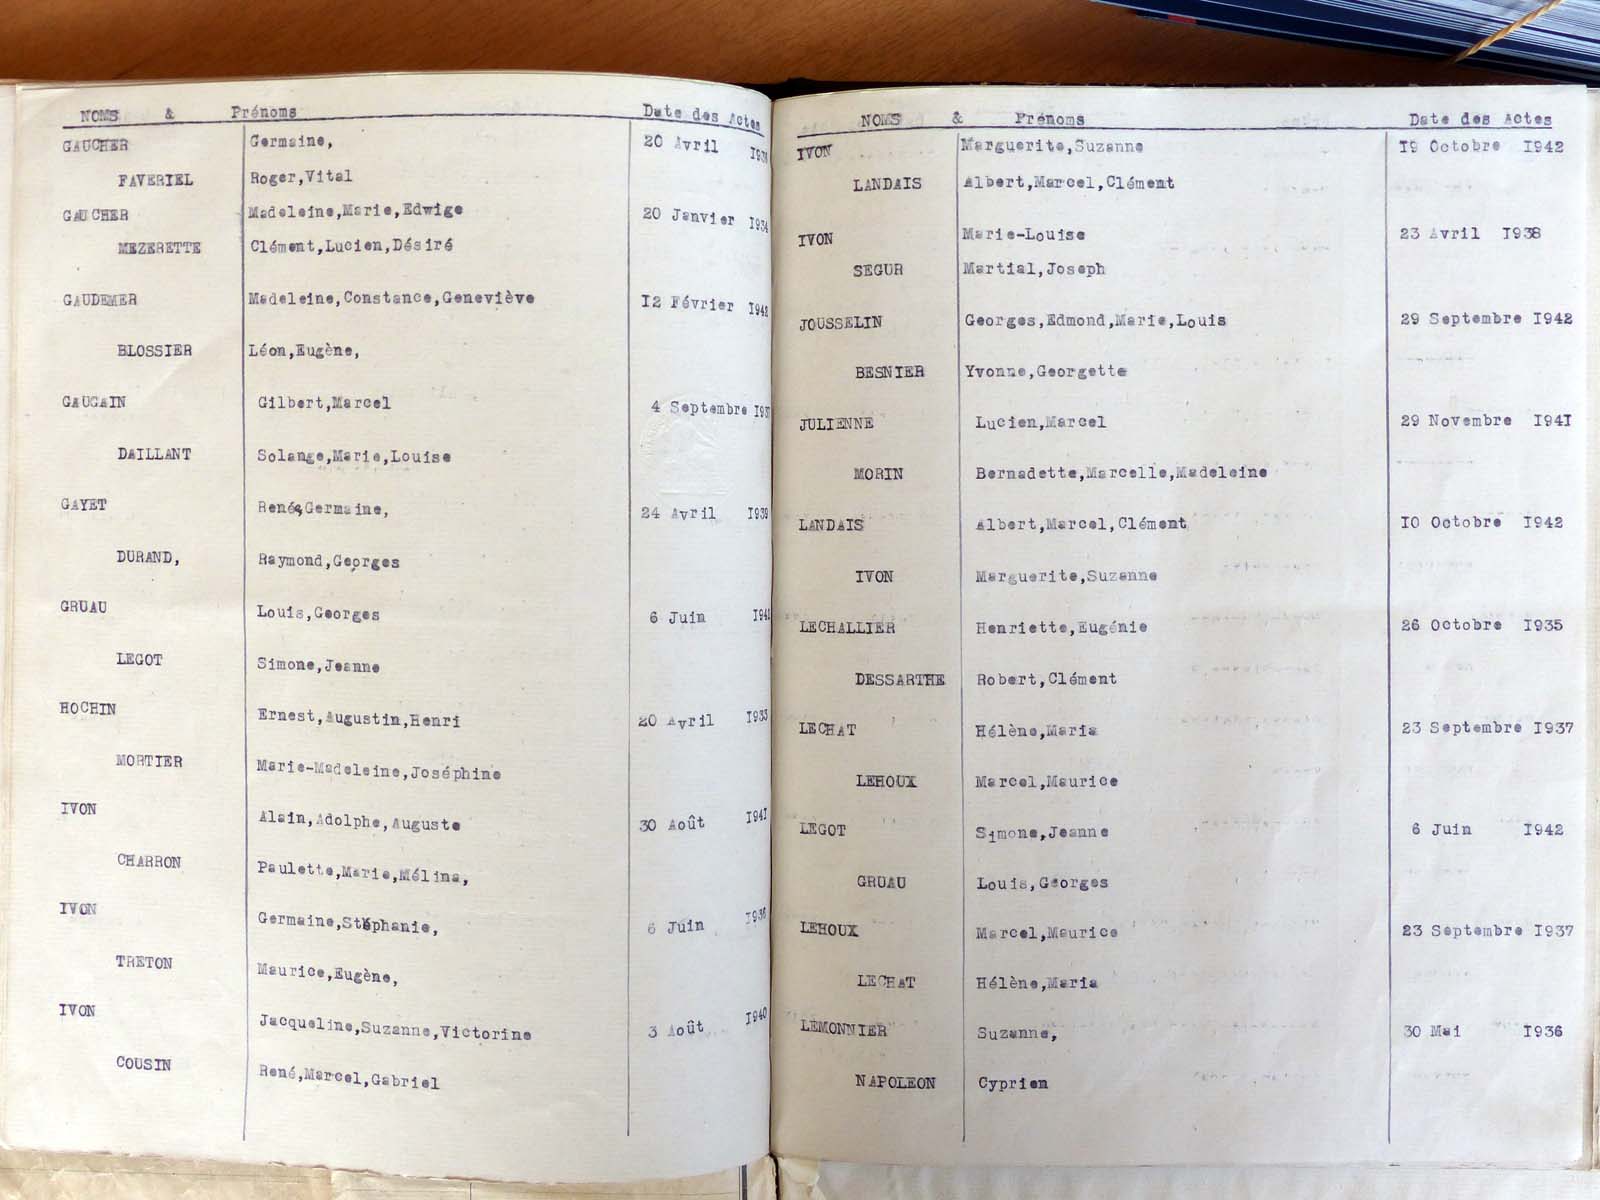 NOMS & Prénoms Date des Actes
GAUCHER Germaine, 20 Avril
FAVERIEL Roger,Vital
GAUCHER Madeleine,Marie,Edwige 20 Janvier 1934
MEZERETTE Clément,Lucien,Désiré
GAUDEMER Madeleine,Constance,Geneviève 12 Février 1942
BLOSSIER Léon,Eugène,
GAUGAIN Gilbert,Marcel 4 Septembre 1937
DAILLANT Solange,Marie,Louise
GAYET Renée,Germaine, 24 Avril 1939
DURAND, Raymond,Georges
GRUAU Louis,Georges 6 Juin 1942
LEGOT Simone,Jeanne
HOCHIN Ernest,Augustin,Henri 20 Avril 1933
MORTIER Marie-Madeleine,Joséphine
IVON Alain,Adolphe,Auguste 30 Août 1941
CHARRON Paulette,Marie,Mélina,
IVON Germaine,Stéphanie, 6 Juin 1936
TRETON Maurice,Eugène,
IVON Jacqueline,Suzanne,Victorine 3 Août 1940
COUSIN René,Marcel,Gabriel
NOMS & Prénoms Date des Actes
IVON Marguerite,Suzanne 19 Octobre 1942
LANDAIS Albert,Marcel,Clément
IVON Marie-Louise 23 Avril 1938
SEGUR Martial,Joseph
JOUSSELIN Georges,Edmond,Marie,Louis 29 Septembre 1942
BESNIER Yvonne,Georgette
JULIENNE Lucien,Marcel 29 Novembre 1941
MORIN Bernadette,Marcelle,Madeleine
LANDAIS Albert,Marcel,Clément 10 Octobre 1942
IVON Marguerite,Suzanne
LECHALLIER Henriette,Eugénie 26 Octobre 1935
DESSARTHE Robert,Clément
LECHAT Hélène,Maria 23 Septembre 1937
LEHOUX Marcel,Maurice
LEGOT Simone,Jeanne 6 Juin 1942
GRUAU Louis,Georges
LEHOUX Marcel,Maurice 23 Septembre 1937
LECHAT Hélène,Maria
LEMONNIER Suzanne, 30 Mai 1936
NAPOLEON Cyprien